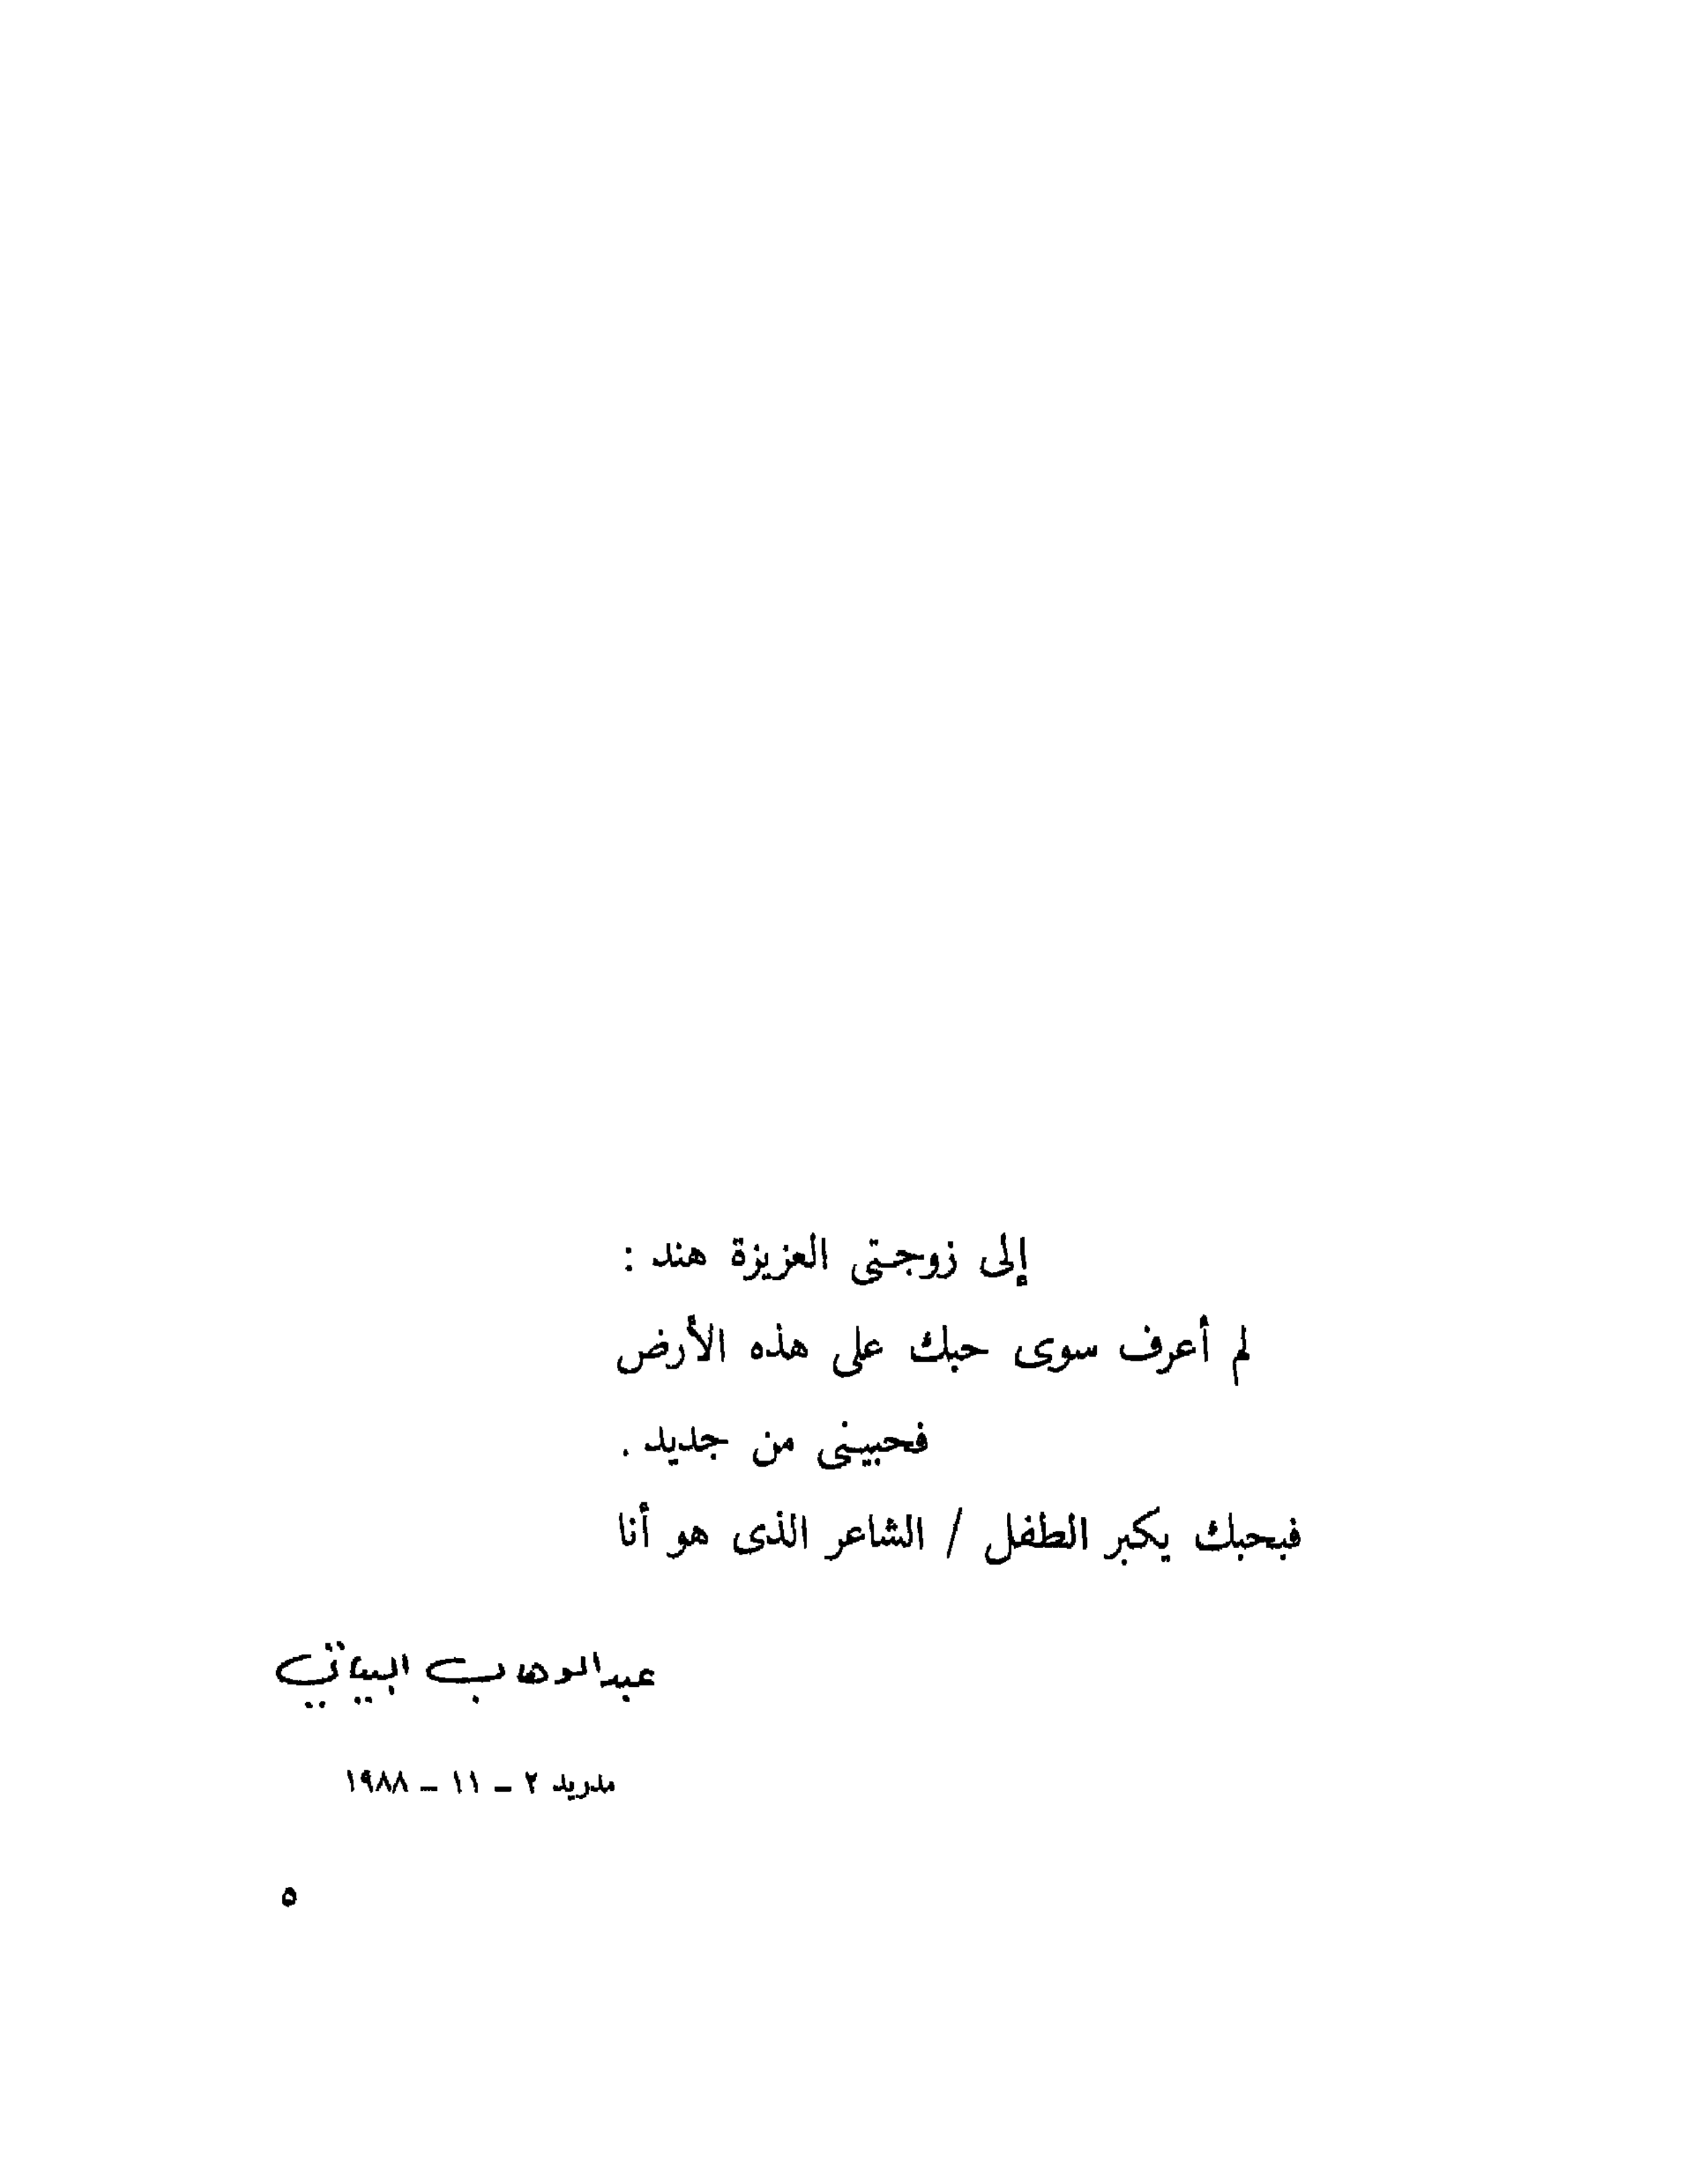 إلى زوجتى العزيزة هند :
لم أعرف سوى حبك على هذه الأرض
فحبينى من جديد .
فبحبك يكبر الطفل / الشاعر الذى هو أنا
عبدالوهاب البياتي
مدريد ٢ – ١١ – ١٩٨٨
٥